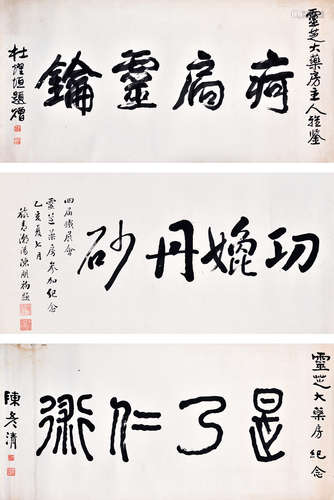 靈芝大藥房主人雅鑒
疴扃靈鑰
題贈
功媲丹砂
四屆鐵展會
靈芝藥房參加紀念
乙亥夏七月
旅青潮陽陳
靈芝大藥房紀念
是乃仁術
陳 清